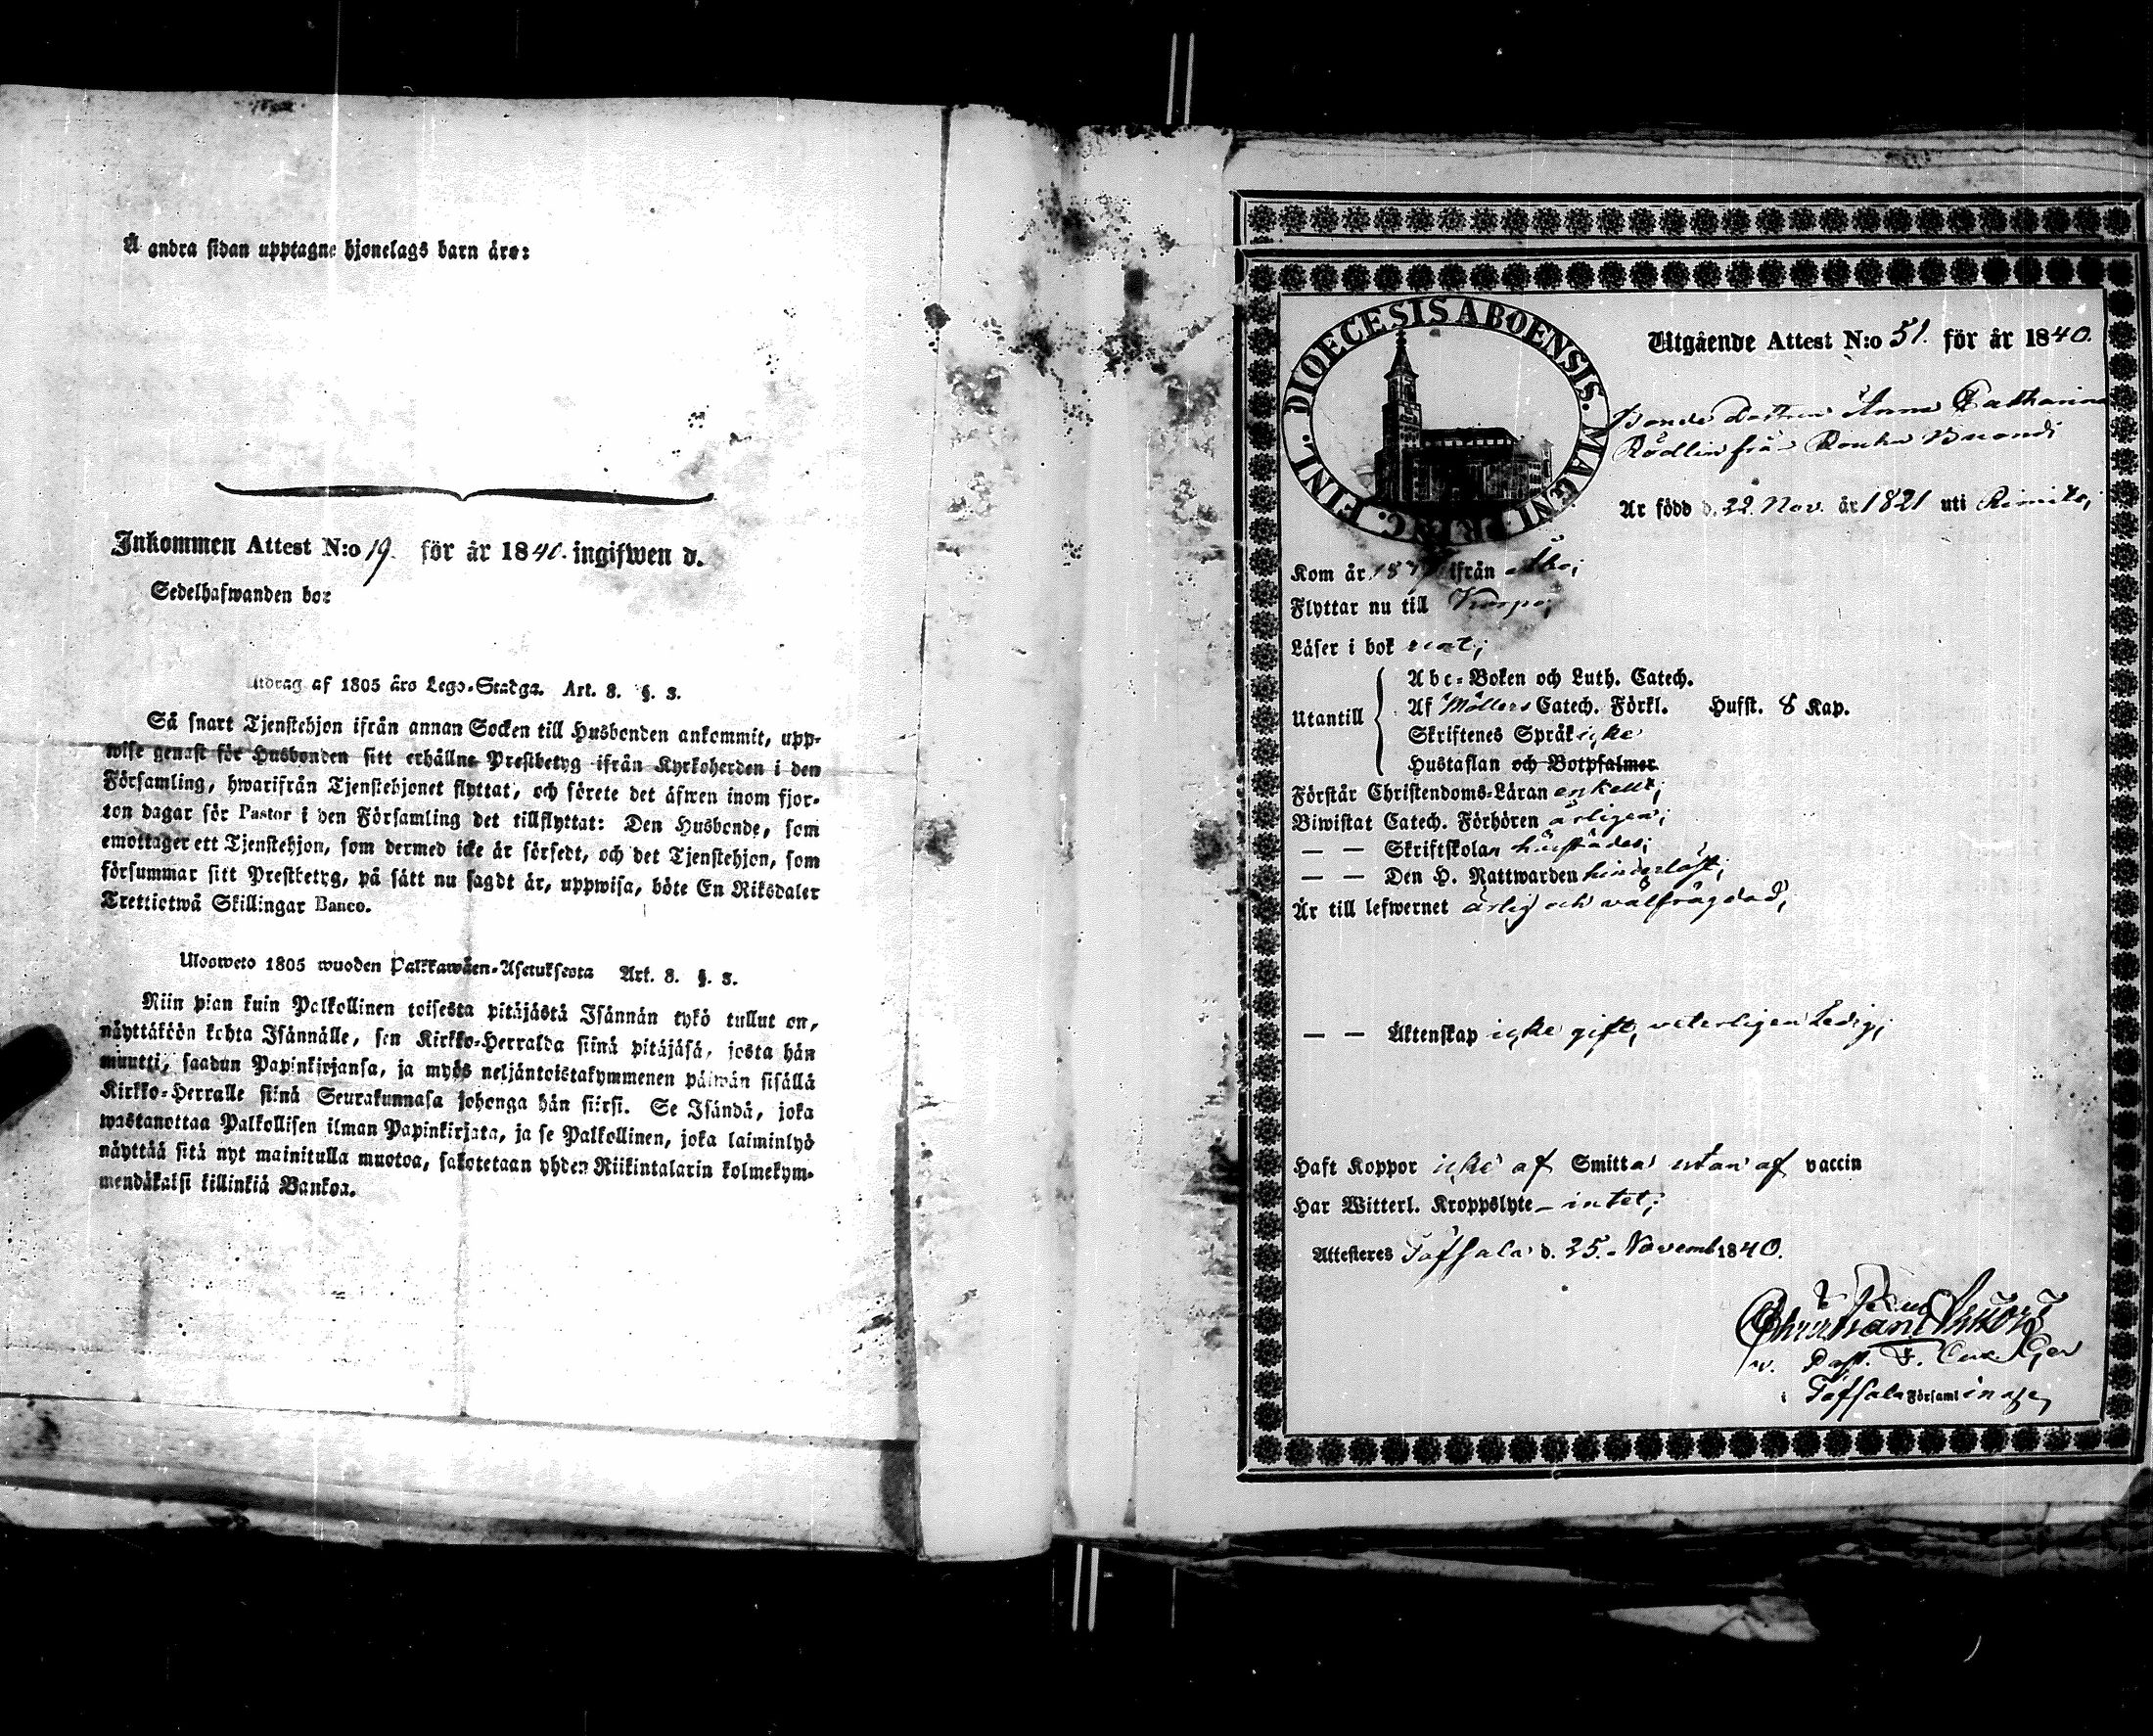 Å andra sidan upptagne hjonelags barn äro:
Inkommen Attest N:o 19. för år 1840. ingifwen d.
Sedelhafwanden bor
Utdrag af 1805 års Lego-Stadga. Art. 8. §. 3.
Så snart Tjenstehjon ifrån annan Socken till Husbonden ankommit, upp-
wise genast för Husbonden sitt erhållne Prestbetyg ifrån Kyrkoherden i den
Församling, hwarifrån Tjenstehjonet flyttat, och förete det äfwen inom fjor-
ton dagar för Pastor i den Församling det tillflyttat: Den Husbonde, som
emottager ett Tjenstehjon, som dermed icke är försedt, och det Tjenstehjon, som
försummar sitt Prestbetyg, på sätt nu sagdt är, uppwisa, böte En Riksdaler
Trettiotwå Skillingar Banco.
Ulosweto 1805 wuoden Palkkawäen-Asetuksesta Art. 8. §. 3.
Niin pian kuin Palkollinen toisesta pitäjästä Isännän tykö tullut on,
näyttäköön kohta Isännälle, sen Kirkko-Herralda siinä pitäjäsä, josta hän
muutti, saadun Papinkirjansa, ja myös neljäntoistakymmenen päiwän sisällä
Kirkko-Herralle siinä Seurakunnasa johonga hän siirsi. Se Isändä, joka
wastanottaa Palkollisen ilman Papinkirjata, ja se Palkollinen, joka laiminlyö
näyttää sitä nyt mainitulla muotoa, sakotetaan yhden Riikintalarin kolmekym-
mendäkaksi killinkiä Bankoa.
DIOECESIS ABOENSIS. MAGNI PRINC. FINL.
Utgående Attest N:o 51. för år 1840.
Bonde Dottren Anna Catharina
Rödlin från
Är född d. 22. Nov. år 1821 uti Rimito;
Kom år ifrån Åbo;
Flyttar nu till Korpo;
Läser i bok
Utantill
Abc-Boken och Luth. Catech.
Af Möllers Catech. Förkl. Hufst. 8 Kap.
Skriftenes Språk icke
Hustaflan och Botpsalmer
Förstår Christendoms-Läran enkelt;
Biwistat Catech. Förhören årligen;
— — Skriftskolan härstädes;
— — Den H. Nattwarden hinderlöst;
Är till lefwernet ärlig och välfrägdad,
— — Äktenskap icke gift, veterligen Ledig;
Haft Koppor icke af Smitta utan af vaccin
Har Witterl. Kroppslyte - intet;
Attesteres Töfsala d. 25. Novemb 1840.
i Töfsala Församl